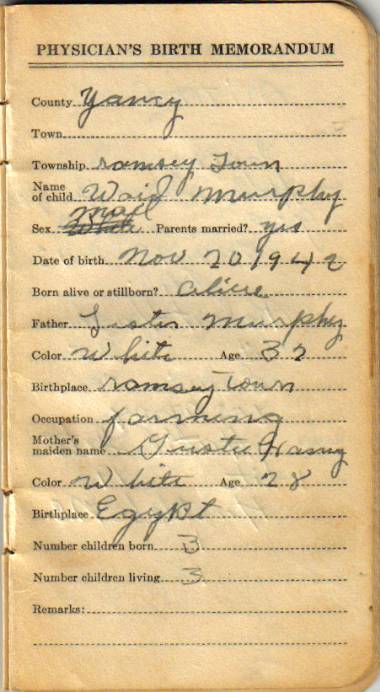 PHYSICIAN'S BIRTH MEMORANDUM
County Yancy
Town
Township ramsey Town
Name
of child Waid Murphy
Sex male White Parents married? yis
Date of birth Nov 20 1942
Born alive or stillborn? alive
Father Lister Murphy
Color White Age 32
Birthplace ramsey Town
Occupation farming
Mother's
maiden name
Color White Age 28
Birthplace Egypt
Number children born 3
Number children living 3
Remarks: